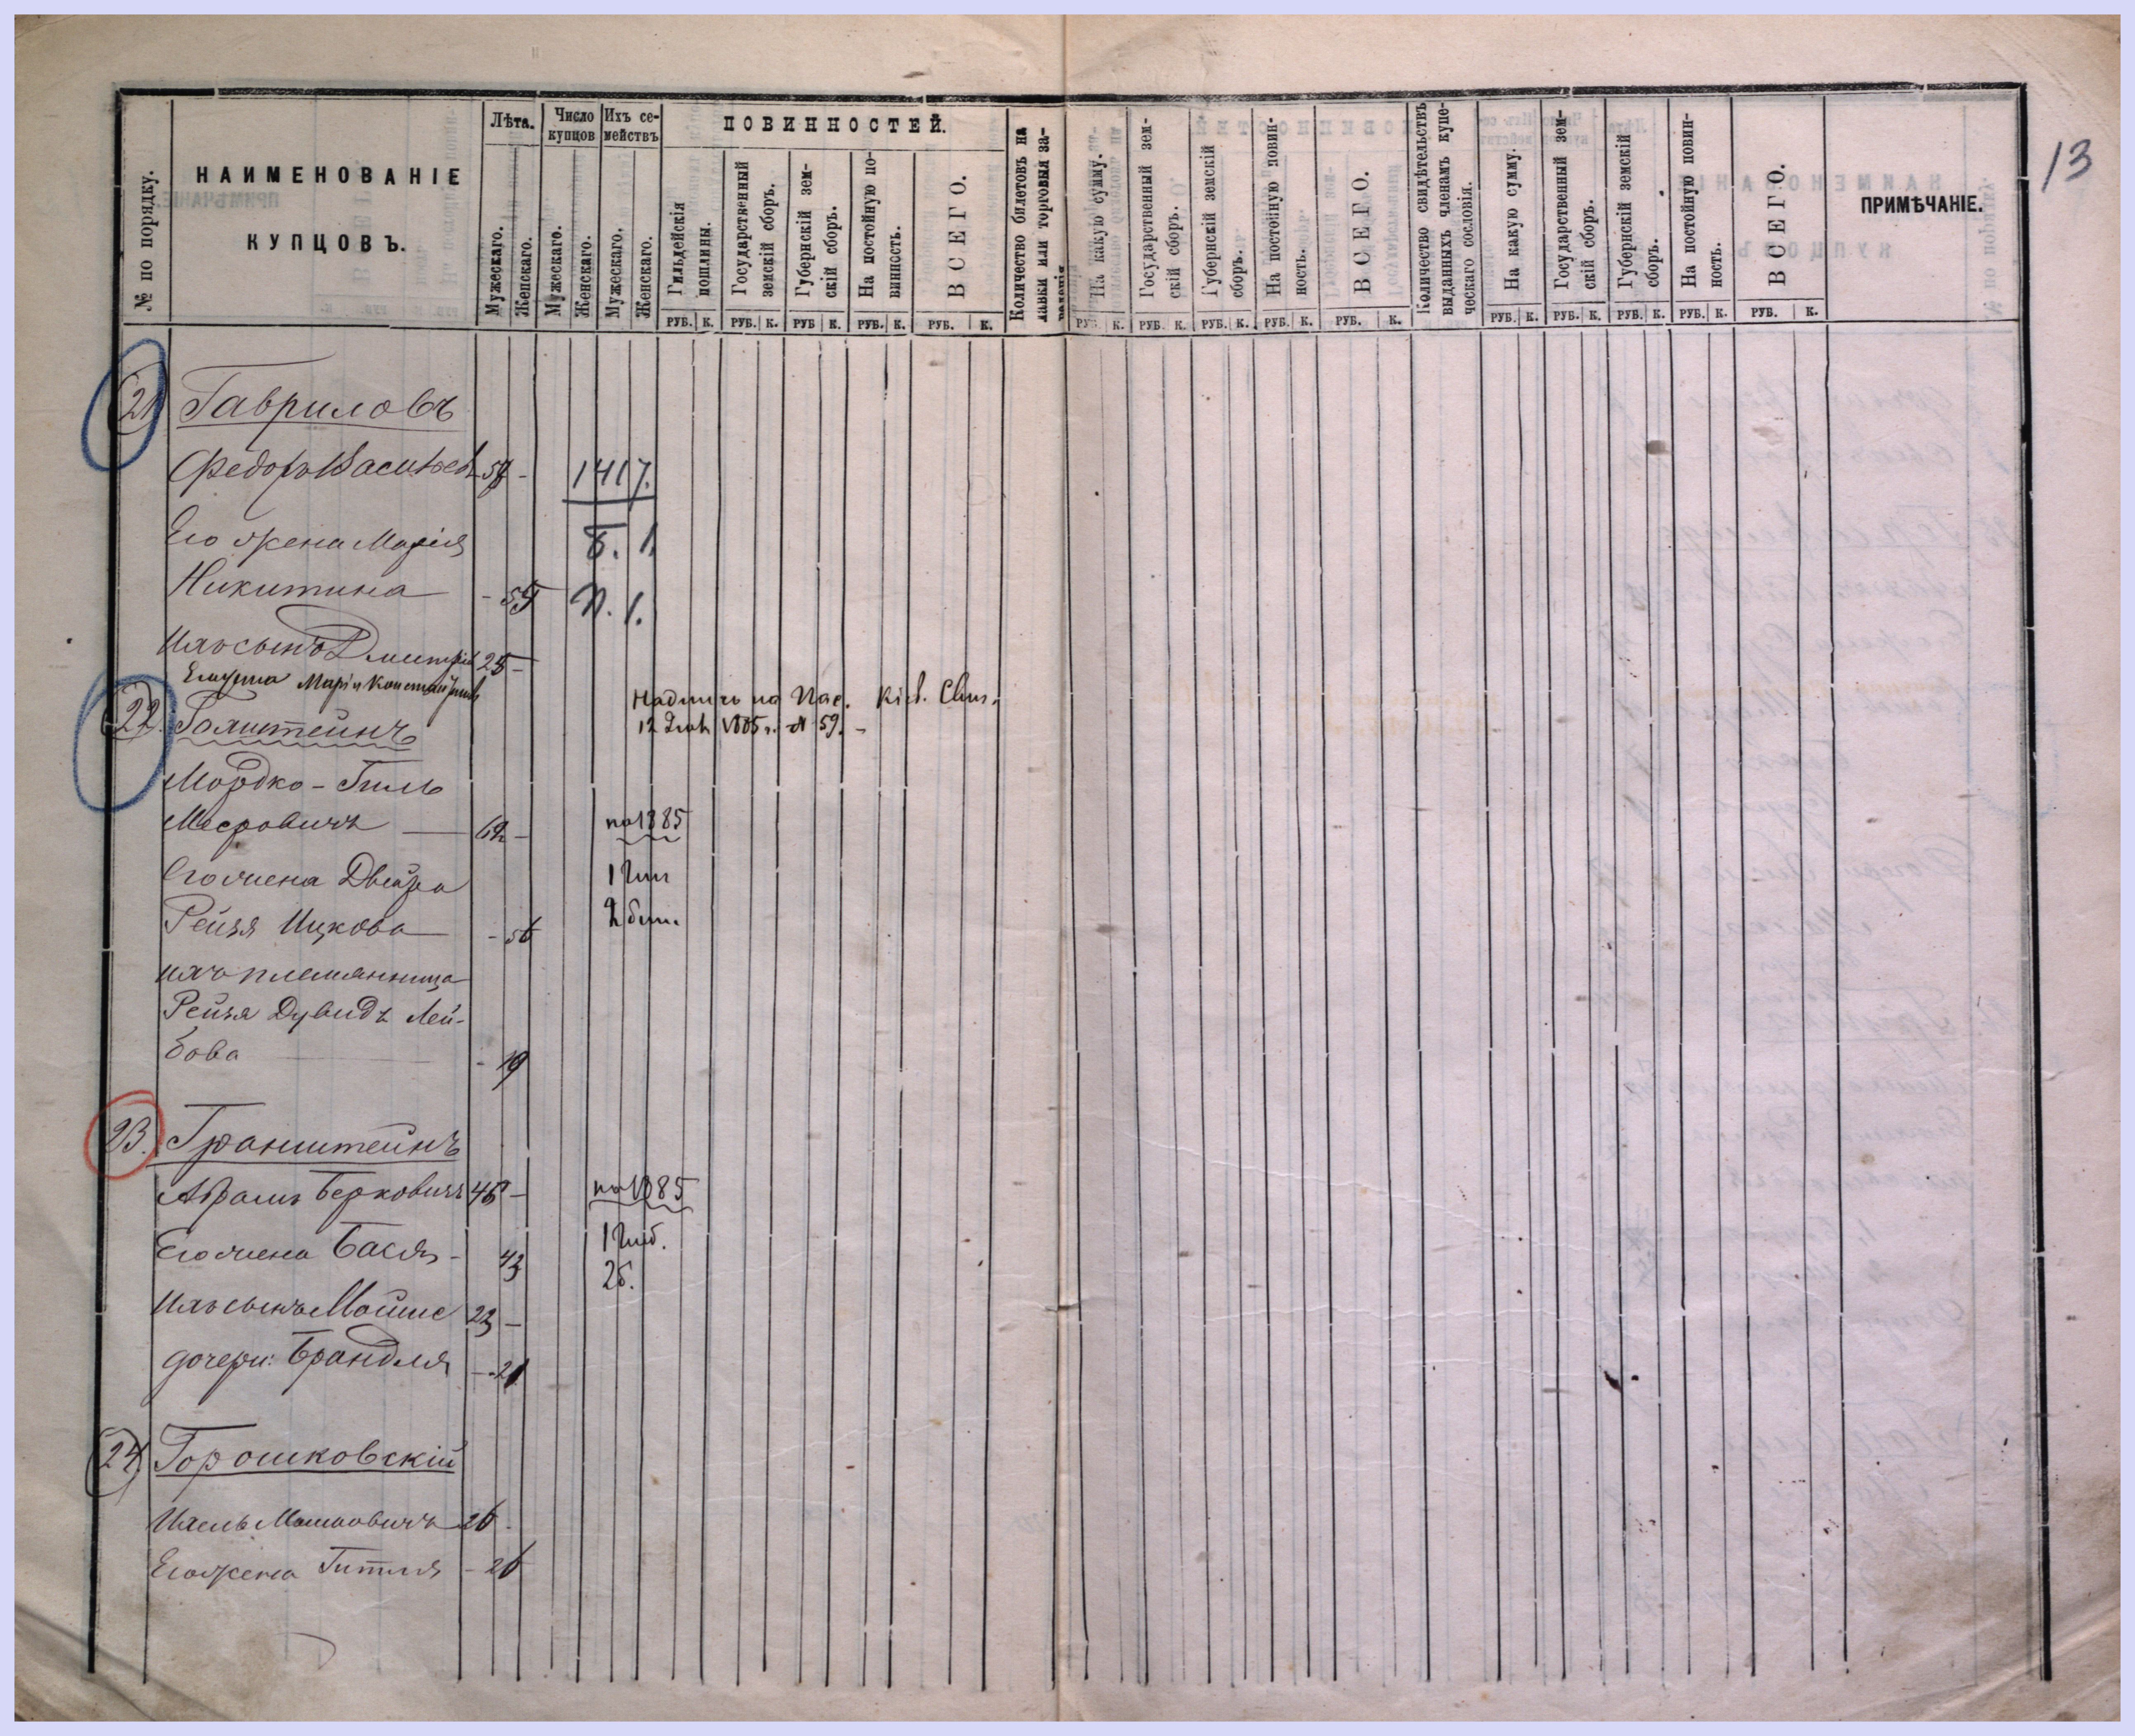 13
№ по порядку.
НАИМЕНОВАНІЕ
КУПЦОВЪ.
Лѣта.
Мужескаго.
Женскаго.
Число купцовъ
Мужескаго.
Женскаго.
Ихъ семействъ
Мужескаго.
Женскаго.
ПОВИННОСТЕЙ.
Гильдейскія пошлины.
Государственный земскій сборъ.
Губернскій земскій сборъ.
На постойную повинность.
ВСЕГО.
Количество билетовъ на лавки или торговыя заведенія
На какую сумму.
Государственный земскій сборъ.
Губернскій земскій сборъ.
На постойную повинность.
ВСЕГО.
Количество свидѣтельствъ выданныхъ членамъ купеческаго сословія.
На какую сумму.
Государственный земскій сборъ.
Губернскій земскій сборъ.
На постойную повинность.
ВСЕГО.
ПРИМѢЧАНІЕ.
РУБ. К. РУБ. К. РУБ К. РУБ. К. РУБ. К. РУБ. К. РУБ. К. РУБ. К. РУБ. К. РУБ. К. РУБ. К. РУБ. К. РУБ. К. РУБ. К. РУБ. К.
21 Гавриловъ
Федоръ Васильев 57 - 1417.
Его жена Марія Б. 1
Никитина - 55 П. 1.
Ихъ сынъ Дмитрій 25 -
Его жена Марія
22. Голштейнъ
12 1885 г. № 59.
Мордко-Гиль
Мееровичъ — 62 - на 1885
Его жена Двейра 1
Рейзя Ицкова - 56 2 бил.
ихъ племянница
Рейзя Дувидъ Лей-
бова - 19
23. Гранштейнъ
Абрамъ Берковичъ 46 - на 1885
Его жена Бася - 43
2б.
Ихъ сынъ Мойше 23 -
дочери: Брандля - 21
24. Горошковскій
Мошковичъ 26 -
Его жена Гитля - 26